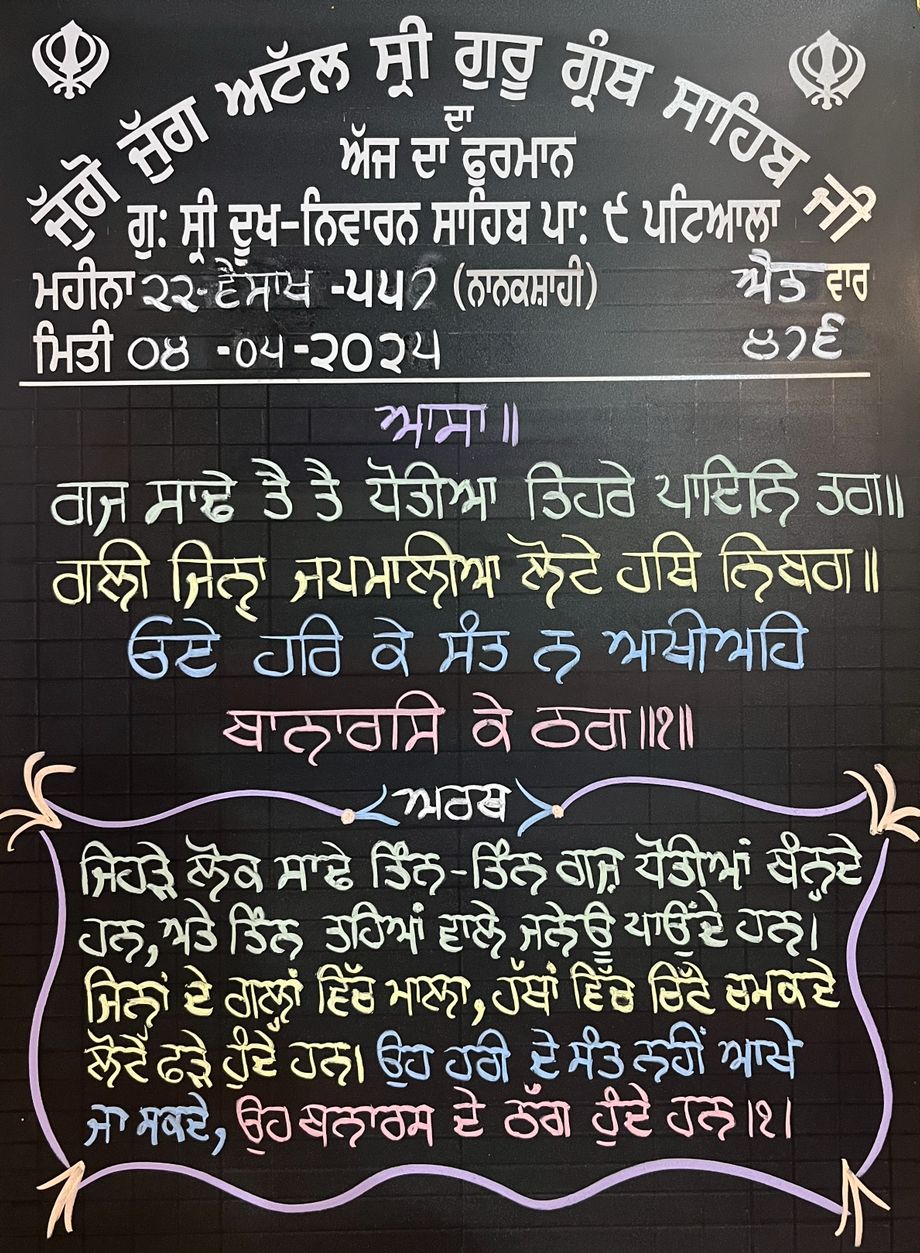 ਜੁੱਗੋ ਜੁੱਗ ਅਟੱਲ ਸ੍ਰੀ ਗੁਰੂ ਗ੍ਰੰਥ ਸਾਹਿਬ ਜੀ
ਦਾ
ਅੱਜ ਦਾ ਫੁਰਮਾਨ
ਗੁ: ਸ੍ਰੀ ਦੂਖ-ਨਿਵਾਰਨ ਸਾਹਿਬ ਪਾ: ੯ ਪਟਿਆਲਾ
ਮਹੀਨਾ ੨੨-ਵੈਸਾਖ -੫੫੭ (ਨਾਨਕਸ਼ਾਹੀ) ਐਤ ਵਾਰ
ਮਿਤੀ ੦੪ -੦੫-੨੦੨੫ ੪੭੬
ਆਸਾ॥
ਗਜ ਸਾਢੇ ਤੈ ਤੈ ਧੋਤੀਆ ਤਿਹਰੇ ਪਾਇਨਿ ਤਗ॥
ਗਲੀ ਜਿਨ੍ਹਾ ਜਪਮਾਲੀਆ ਲੋਟੇ ਹਥਿ ਨਿਬਗ॥
ਓਇ ਹਰਿ ਕੇ ਸੰਤ ਨ ਆਖੀਅਹਿ
ਬਾਨਾਰਸਿ ਕੇ ਠਗ॥੧॥
ਅਰਥ
ਜਿਹੜੇ ਲੋਕ ਸਾਢੇ ਤਿੰਨ-ਤਿੰਨ ਗਜ਼ ਧੋਤੀਆਂ ਬੰਨ੍ਹਦੇ
ਹਨ,ਅਤੇ ਤਿੰਨ ਤਹਿਆਂ ਵਾਲੇ ਜਨੇਊ ਪਾਉਂਦੇ ਹਨ।
ਜਿਨਾਂ ਦੇ ਗਲਾਂ ਵਿੱਚ ਮਾਲਾ,ਹੱਥਾਂ ਵਿੱਚ ਚਿੱਟੇ ਚਮਕਦੇ
ਲੋਟੇ ਫੜੇ ਹੁੰਦੇ ਹਨ। ਉਹ ਹਰੀ ਦੇ ਸੰਤ ਨਹੀਂ ਆਖੇ
ਜਾ ਸਕਦੇ, ਉਹ ਬਨਾਰਸ ਦੇ ਠੱਗ ਹੁੰਦੇ ਹਨ।੧।